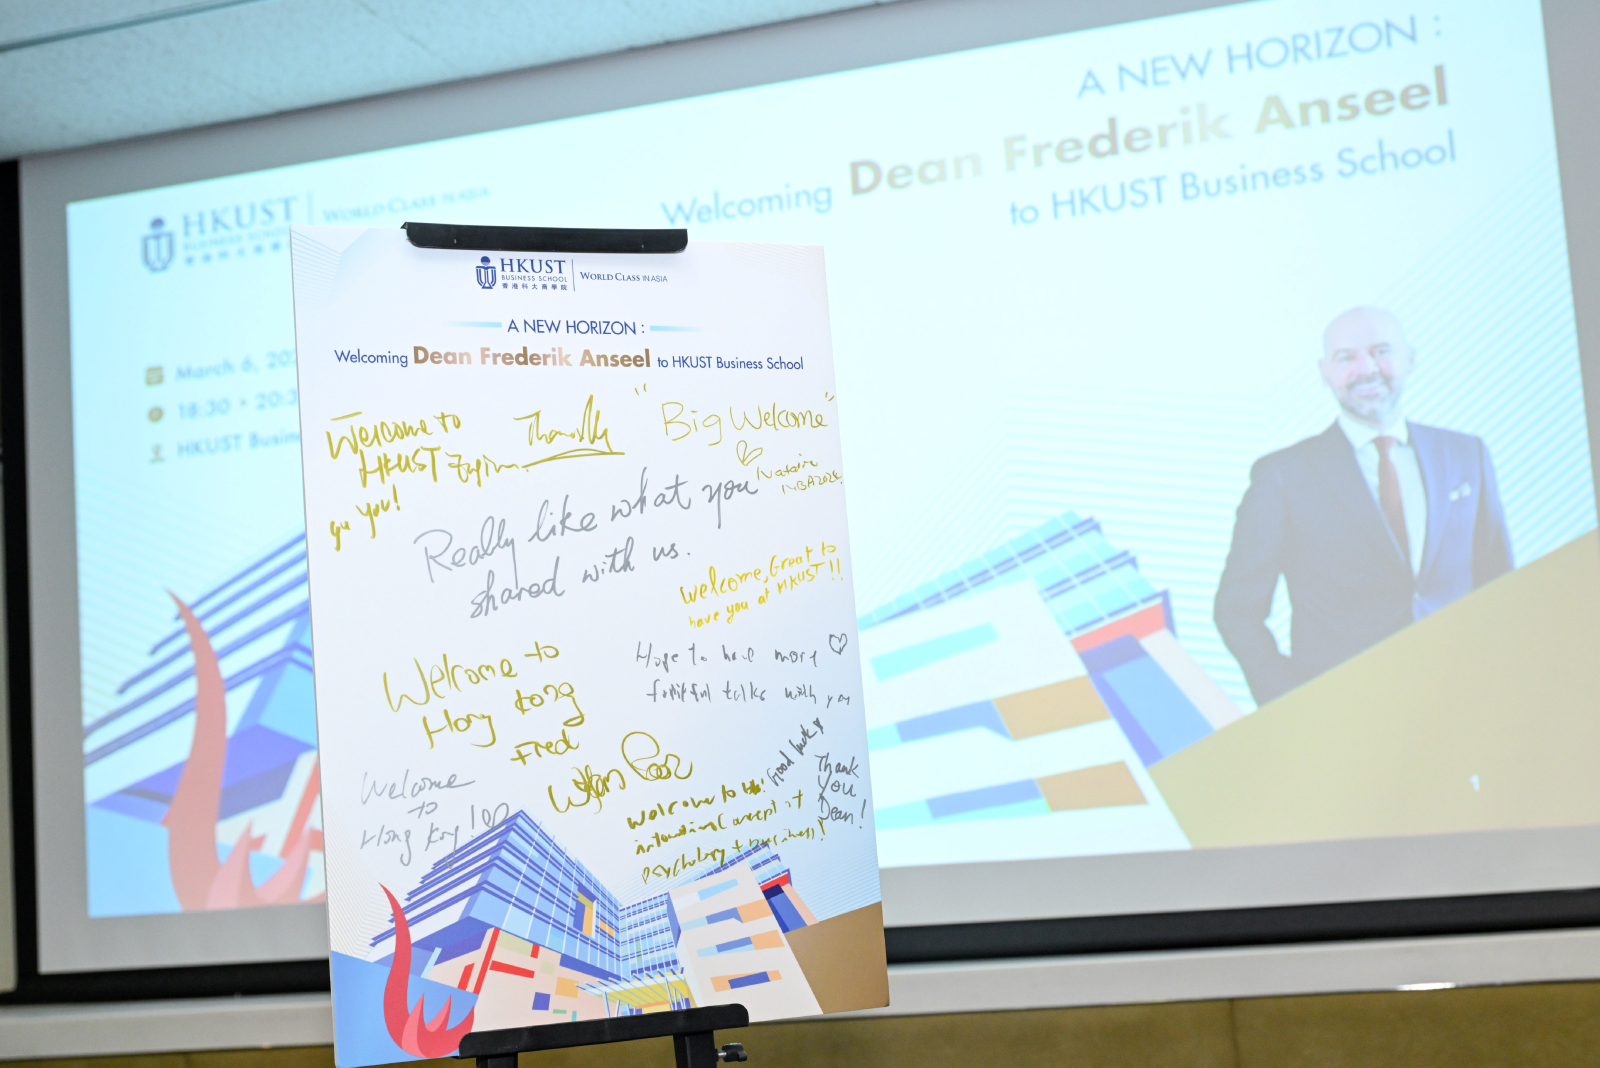 A NEW HORIZON :
Welcoming Dean Frederik Anseel
to HKUST Business School
HKUST
BUSINESS SCHOOL
WORLD CLASS IN ASIA
March 6, 20
18:30
HKUST Busin
HKUST
BUSINESS SCHOOL
香港科大商學院
WORLD CLASS IN ASIA
A NEW HORIZON :
Welcoming Dean Frederik Anseel to HKUST Business School
Welcome to
HKUST
you!
"Big Welcome"
Really like what you
shared with us.
Welcome, Great to
have you at HKUST!!
Hope to have more
talks with you
Welcome to
Hong Kong
Fred
Welcome
to
Hong Kong!
Good luck
Thank
You
Dean!
Welcome to
concept of
psychology + business!